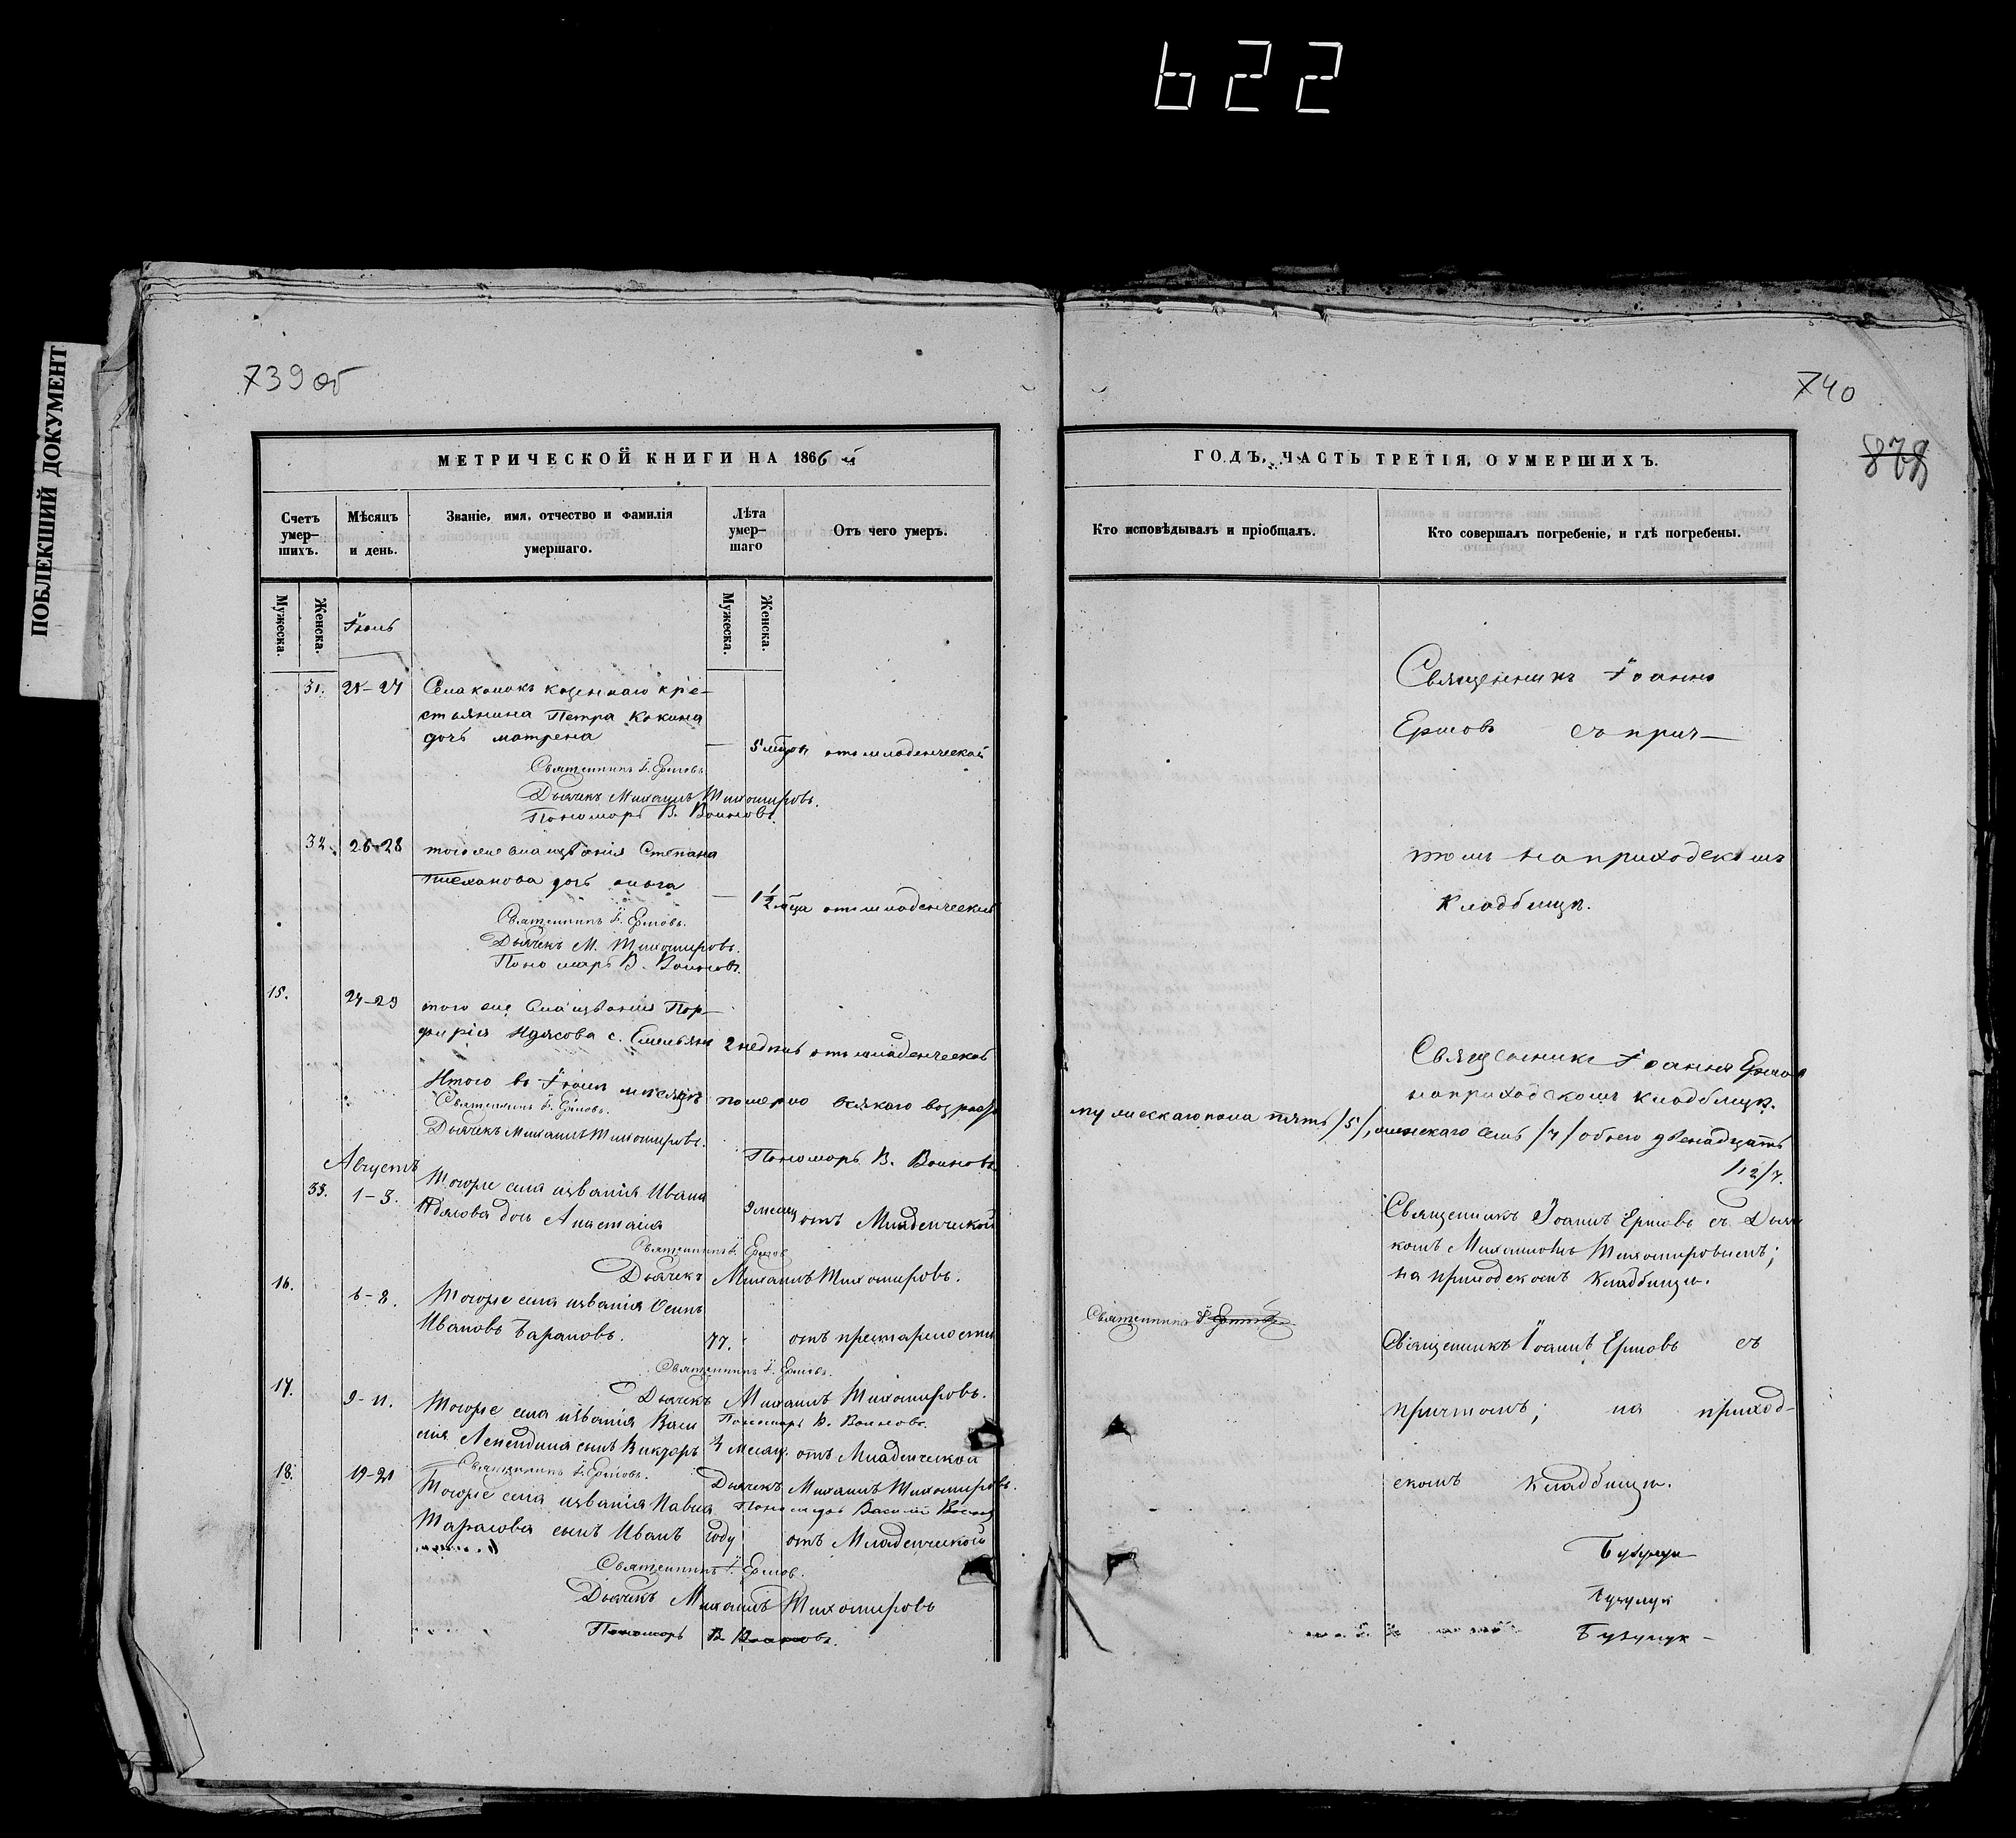 622
ПОБЛЕКШИЙ ДОКУМЕНТ
739 об
740
878
МЕТРИЧЕСКОЙ КНИГИ НА 1866 й
ГОДЪ, ЧАСТЬ ТРЕТІЯ, О УМЕРШИХЪ.
Счетъ умер-шихъ.
Мѣсяцъ и день.
Званіе, имя, отчество и фамилія умершаго.
Лѣта умер-шаго
Отъ чего умеръ.
Кто исповѣдывалъ и пріобщалъ.
Кто совершалъ погребеніе, и гдѣ погребены.
Мужеска.
Женска.
Мужеска.
Женска.
Іюль
31. 25-27
крестьянина Петра Кокина
дочь матрена
отъ младенческой
Священникъ І. Ершовъ
Дьячекъ Михаилъ Тихомировъ.
Пономарь В. Воиновъ.
Священникъ Іоаннъ
Ершовъ съ прич-
32. 26-28
тогоже села званія Степана
дочь ольга
1 1/2 отъ младенческой
Священникъ І. Ершовъ.
Дьячекъ М. Тихомировъ.
Пономарь В. Воиновъ.
томъ на приходскомъ
кладбищѣ.
15. 27-29
того же села званія Пор-
фирія с. Емельянъ 2 недѣль отъ младенческой
Священникъ Іоаннъ Ершовъ
на приходскомъ кладбищѣ.
Итого въ Іюлѣ месяцѣ померло всякаго возраста
мужескаго пола пять /5/, женскаго семь /7/ обоего двенадцать
/12/.
Священникъ І. Ершовъ.
Дьячекъ Михаилъ Тихомировъ.
Пономарь В. Воиновъ
Августъ
33. 1-3.
Тогоже села званія Ивана
дочь Анастасія 9 месяц отъ Младенческой
Священникъ І. Ершовъ
Дьячекъ Михаилъ Тихомировъ.
Священникъ Іоаннъ Ершовъ съ Дьяч
комъ Михаиломъ Тихомировымъ;
на приходскомъ кладбищѣ.
16. 6-8.
Тогоже села званія Осипъ
Ивановъ Тарановъ. 77. отъ престарелости
Священникъ І. Ершовъ.
Дьячекъ Михаилъ Тихомировъ.
Пономарь В. Воиновъ.
Священникъ І. Ершовъ
Священникъ Іоаннъ Ершовъ съ
причтомъ; на приход-
скомъ кладбищѣ.
17. 9-11.
Тогоже села званія Васи
лія сынъ Викторъ месяц. отъ Младенческой
Священникъ І. Ершовъ.
Дьячекъ Михаилъ Тихомировъ.
Пономарь Василій
18. 19-21
Тогоже села званія Павла
Тарасова сынъ Иванъ году отъ Младенческой
Священникъ І. Ершов.
Дьячекъ Михаилъ Тихомировъ
Пономарь В. Воиновъ.
Бузулук
Бузулук
Бузулук